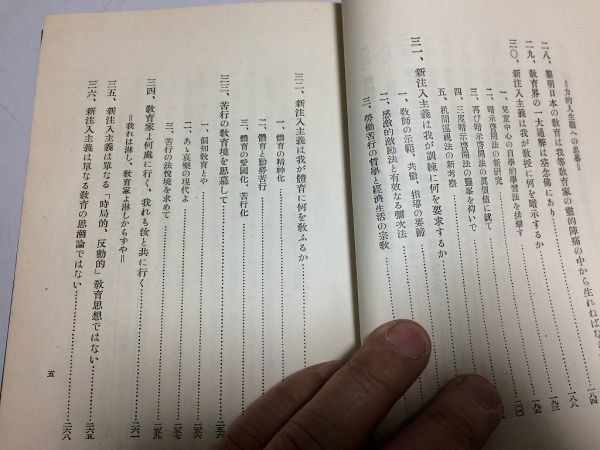 ＝力的人生觀への思慕＝
二八、黎明日本の教育は我等教育家の靈的陣痛の中から生れねばな………一八四
二九、教育界の一大通弊は空念佛にあり………一八八
三〇、新注入主義は我が教授に何を暗示するか………一九三
一、兒童中心の自學的學習法を排撃す………一九五
二、暗示啓開法の新研究………二〇〇
三、再び暗示啓開法の眞價値に就て
四、三度暗示啓開法の靈峯を仰いで
五、机間巡視法の新考察
三一、新注入主義は我が訓練に何を要求するか
一、教師の示範、共働、指導の要師
二、感激的激勵法と有效なる彌次法
三、勞働苦行の哲學と經濟生活の宗教
三二、新注入主義は我が體育に何を敎ふるか
一、體育の精神化
二、體育と勤勞苦行
三、體育の愛國化、苦行化
三三、苦行の教育境を思慕して
一、個知教育とや………二五六
二、あゝ哀樂の現代よ………二五七
三、苦行の法悅境を求めて………二五九
三四、教育家よ何處に行く、我れも汝と共に行く………二六一
＝我れは淋し、教育家よ淋しからずや＝
三五、新注入主義は單なる「時局的、反動的」教育思想ではない………二六五
三六、新注入主義は單なる教育の思潮論ではない………二六八
五